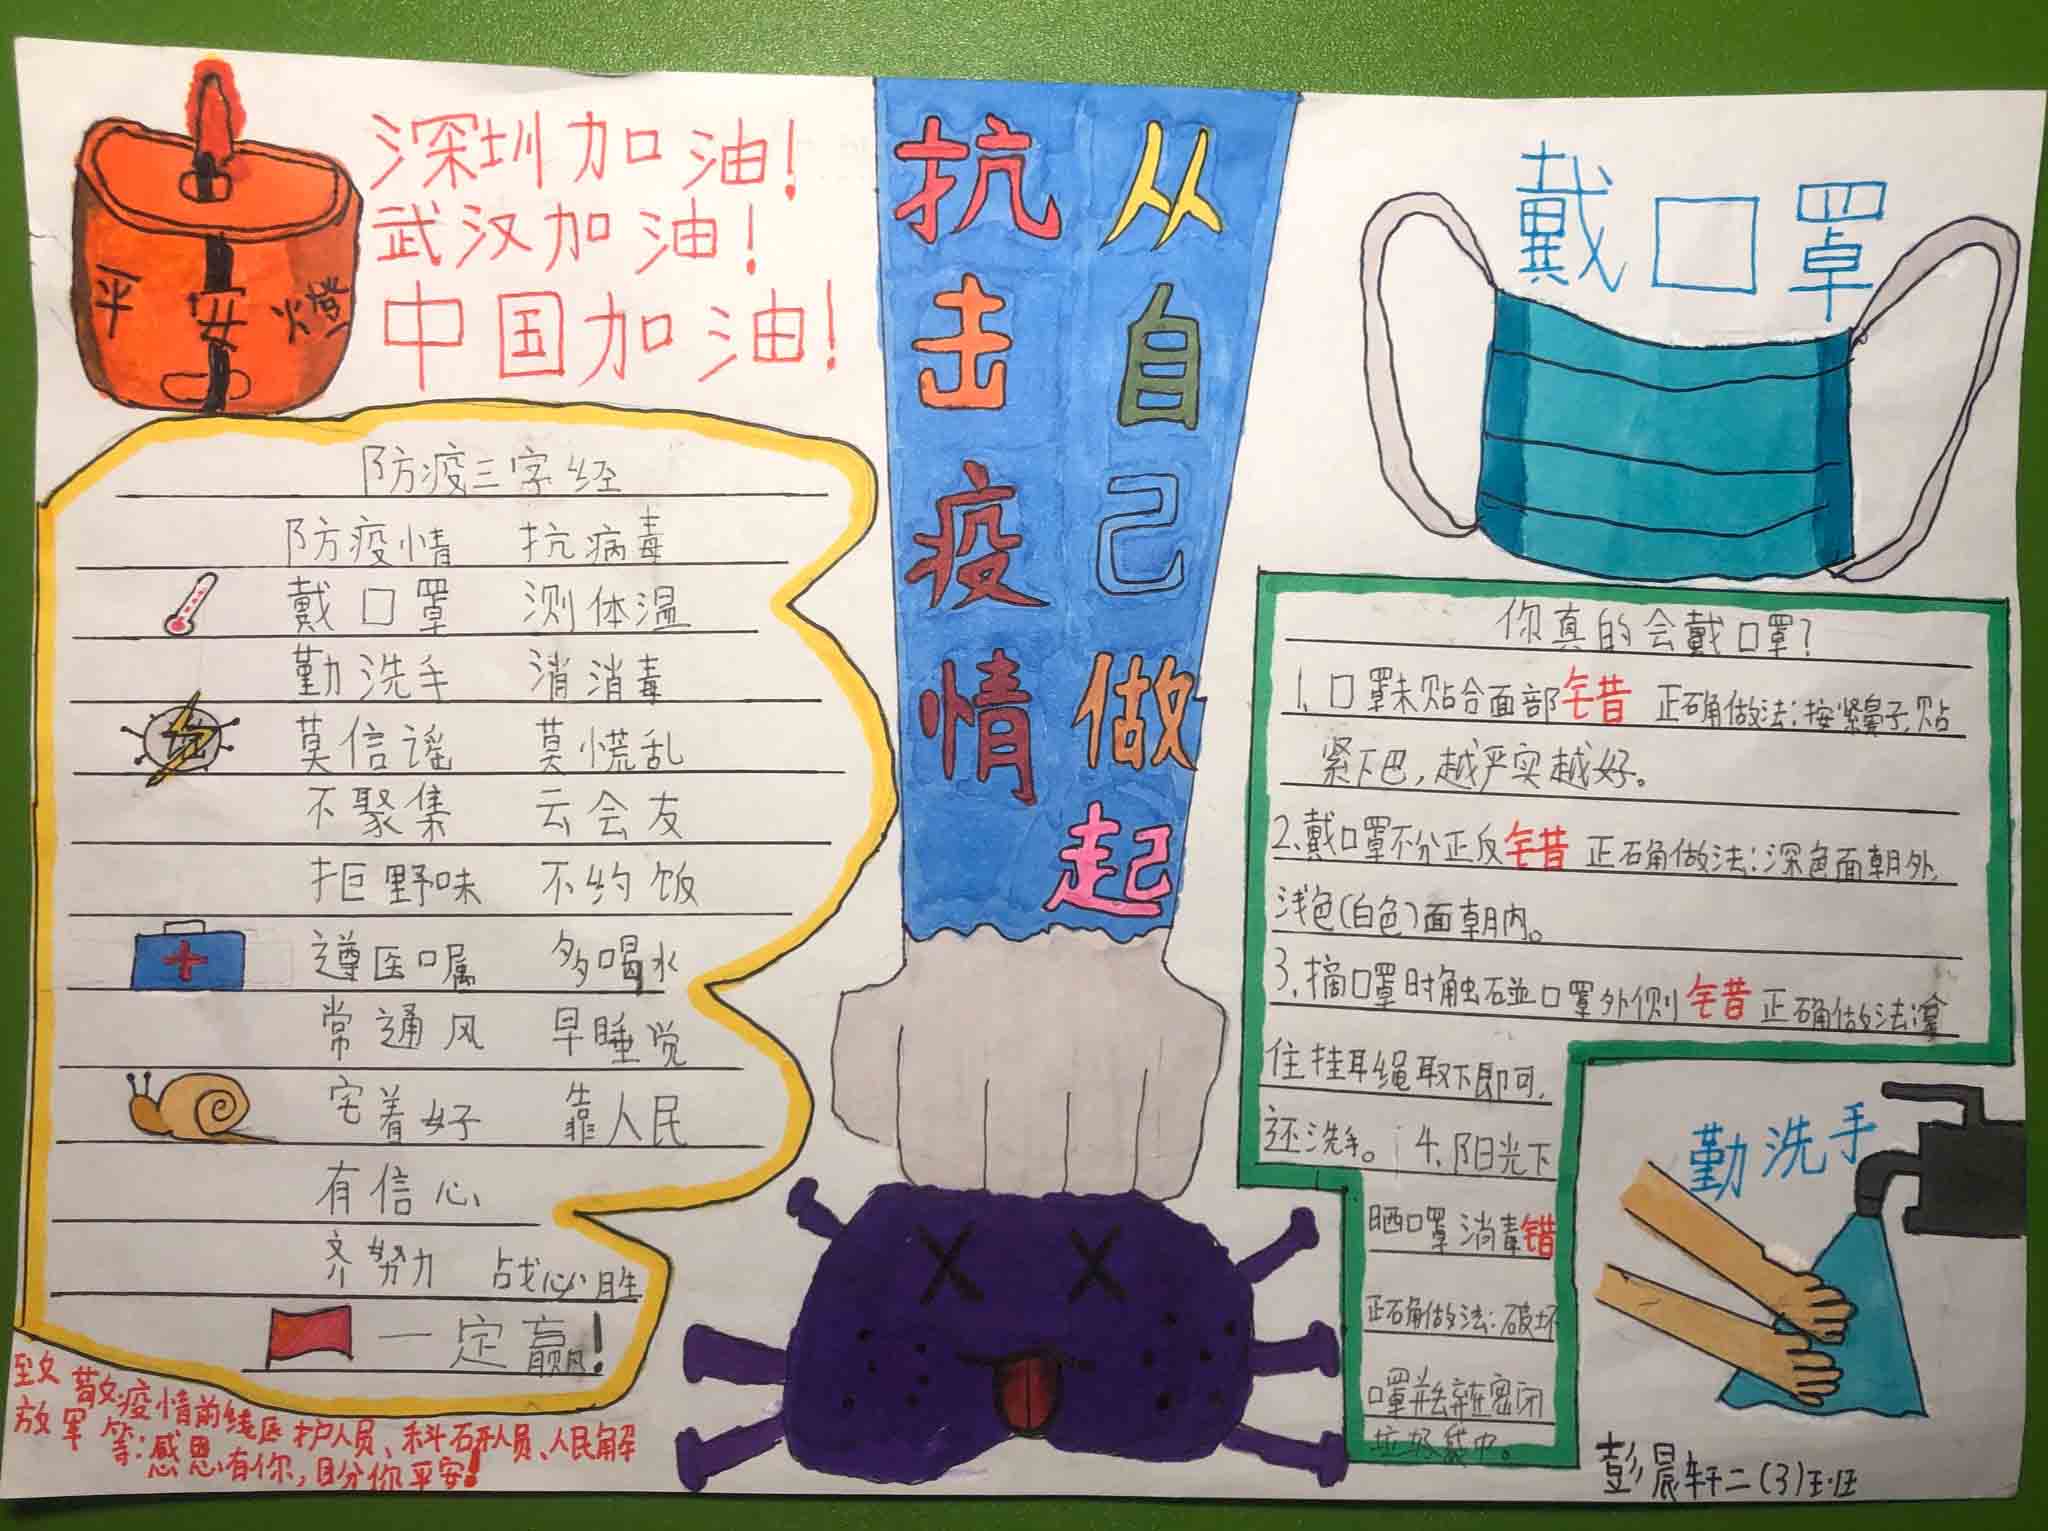 平安燈
深圳加油!
武汉加油!
中国加油!
防疫三字经
防疫情 抗病毒
戴口罩 测体温
勤洗手 消消毒
莫信谣 莫慌乱
不聚集 云会友
拒野味 不约饭
遵医嘱 多喝水
常通风 早睡觉
宅着好 靠人民
有信心
齐努力 战必胜
一定赢!
致敬疫情前线医护人员、科研人员、人民解
放军等:感恩有你,盼你平安!
抗击疫情
从自己做起
戴口罩
你真的会戴口罩?
1、口罩未贴合面部 错 正确做法:按紧鼻子,贴
紧下巴,越严实越好。
2、戴口罩不分正反 错 正确做法:深色面朝外,
浅色(白色)面朝内。
3、摘口罩时触碰口罩外侧 错 正确做法:拿
住挂耳绳取下即可,
还洗手。 4、阳光下
晒口罩消毒 错
正确做法:破坏
口罩并丢弃在密闭
垃圾袋中。
勤洗手
彭晨轩二(3)班